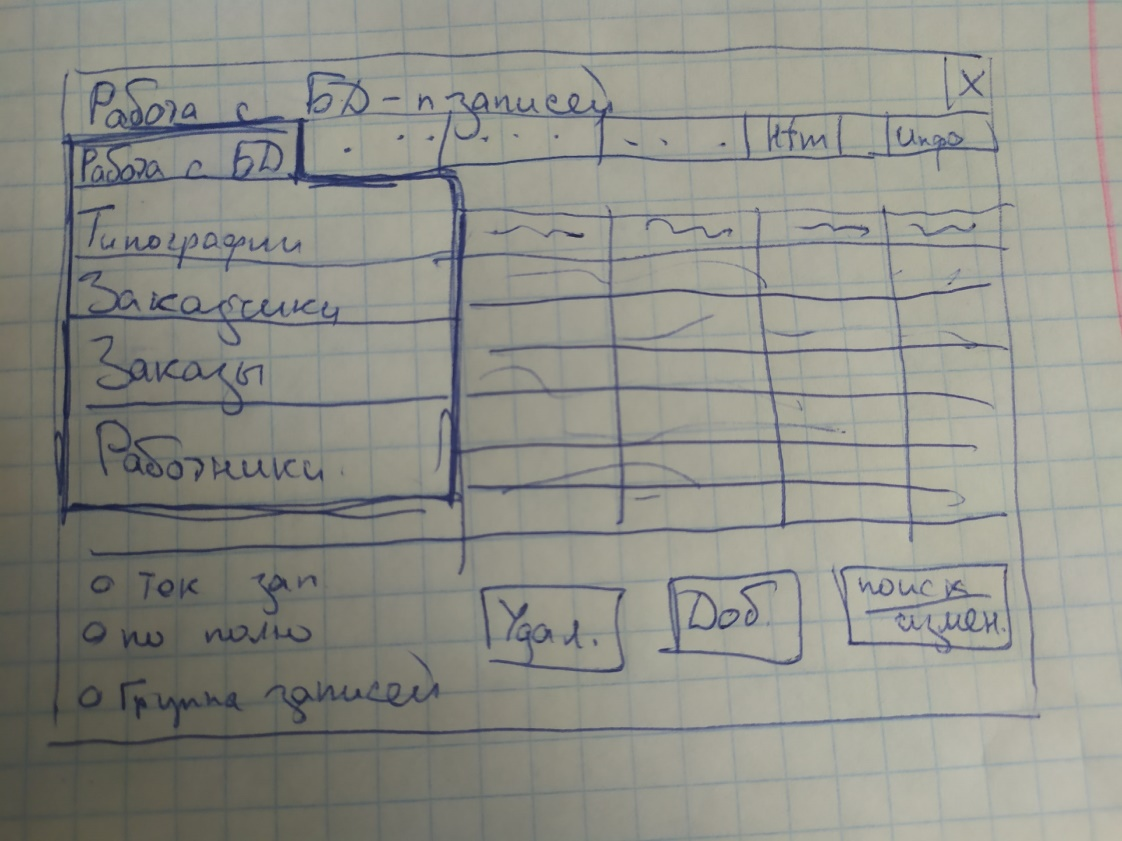 Работа с БД - п записей X
Работа с БД ... ... ... Htm Инфо
Типографии
Заказчики
Заказы
Работники
тек зап
по полю
Группа записей
Удал.
Доб.
поиск
измен.